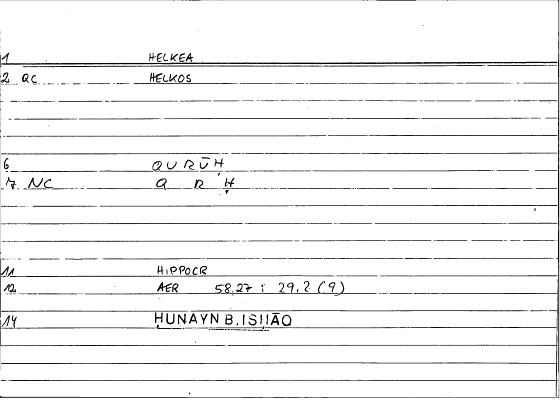 1 HELKEA
2 QC HELKOS
6 QURŪḤ
7 NC Q R Ḥ
11 HIPPOCR
12 AER 58,27 : 29,2 (9)
14 ḤUNAYN B. ISḤĀQ